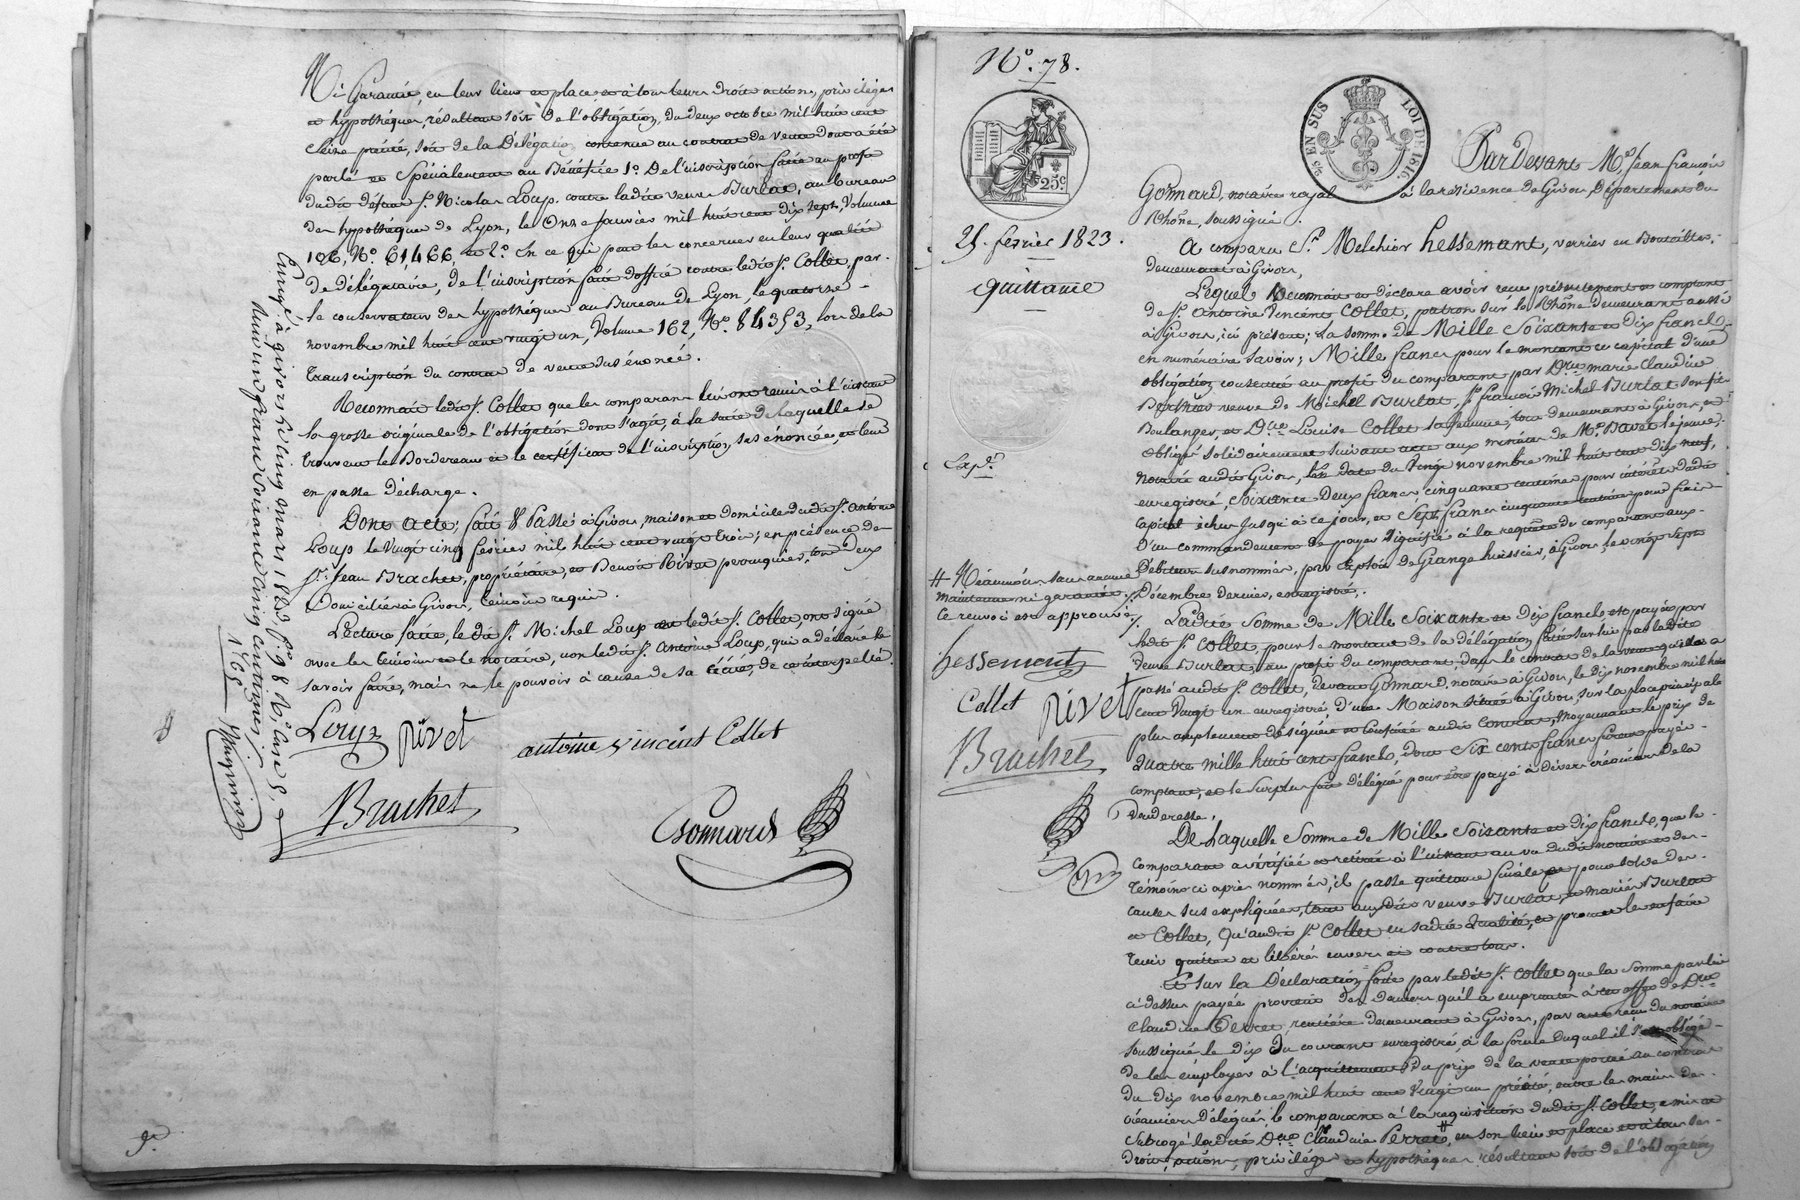 Ni Garantie, en leur lieu et place et à tous leurs droits actions, privilèges
et hypothèques, résultant soit de l'obligation du deux octobre mil huit cent
seize précité, soit de la Délégation contenue au contrat de vente dont a été
parlé et Spécialement au Bénéfice 1o. De l'inscription faite au profit
dudit défunt Sr. Nicolas Loup, contre ladite veuve Burlat, au bureau
des hypothèques de Lyon, le Onze Janvier mil huit cent dix sept, Volume
126, No. 61,466, et 2o. En ce qui peut les concerner en leur qualité
de délégataire, de l'inscription faite d'office contre ledit Sr. Collet, par
le conservateur des hypothèques au Bureau de Lyon, le quatorze
novembre mil huit cent vingt un, Volume 162, No. 84353, lors de la
transcription du contrat de vente sus énoncé.
Reconnait ledit Sr. Collet que les comparans lui ont remis à l'instant
la grosse originale de l'obligation dont s'agit, à la suite de laquelle se
trouvent le Bordereau et le certificat de l'inscription sus énoncée, et leur
en passe décharge.
Dont acte; fait & Passé à Givors, maison et domicile dudit Sr. Antoine
Loup le Vingt cinq février mil huit cent vingt trois; en présence de
Srs. Jean Brachet, propriétaire, et Benoit Rivet perruquier, tous Deux
Domiciliés à Givors, témoins requis.
Lecture faite, le dit Sr. Michel Loup et ledit Sr. Collet, ont signé
avec les témoins et le notaire, non ledit Sr. Antoine Loup, qui a déclaré le
savoir faire, mais ne le pouvoir à cause de sa cécité, de ce interpellé.
Loup pivet antoine vincent Collet
Brachet
Gonnard
Enregé à givors le cinq mars 1823, fo. 98. Ro. Case 5,
1f 65
No. 78.
25c
25 février 1823.
quittance
Expé.
25cs EN SUS
LOI DE 1816
Par Devant Me. Jean françois
Gonnard, notaire royal à la résidence de Givors, Département du
Rhône, soussigné.
A comparu Sr. Melchior hessemant, verrier en Bouteilles,
demeurant à Givors,
Lequel Reconnait et déclare avoir reçu présentement et comptant
de Sr. antoine Vincent Collet, patron sur le Rhône demeurant aussi
à Givors, ici présent; La somme de Mille Soixante et dix francs
en numéraire savoir; Mille francs pour le montant et capital d'une
obligation consentie au profit du comparant par Dme. marie Claudine
Berthier veuve de Michel Burlat, Sr. françois Michel Burlat son fils
Boulanger, et Dme. Louise Collet sa femme, tous demeurant à Givors, et
obligés solidairement suivant acte aux minutes de Me. Bavet le jeune,
notaire audit Givors, en date du Vingt novembre mil huit cent dix neuf,
enregistré, Soixante Deux francs cinquante centimes pour intérêts dudit
Capital échus jusqu'à ce jour, et Sept francs cinquante centimes pour frais
D'un commandement de payer signifié à la requête du comparant aux
Débiteurs susnommés, par Exploit de Grange huissier, à Givors, le vingt sept
Décembre dernier, enregistré.
Ladite Somme de Mille Soixante et dix francs est payée par
ledit Sr. Collet, pour le montant de la délégation faite sur lui par ladite
veuve Burlat, au profit du comparant, dans le contrat de la vente qu'elle a
passé audit Sr. Collet, devant Gonnard, notaire à Givors, le dix novembre mil huit
cent Vingt un enregistré, d'une Maison située à Givors, sur la place principale
plus amplement désignée et confinée audit Contrat, moyennant le prix de
quatre mille huit cents francs, dont Six cents francs furent payés
comptant, et le Surplus fut délégué pour être payé à divers créanciers de la
Venderesse.
De Laquelle Somme de Mille Soixante et dix francs, que le
comparant a vérifiée et retirée à l'instant au vu dudit notaire et des
témoins ci après nommés, il passe quittance finale et pour solde des
causes sus expliquées, tant auxdits veuve Burlat, et mariés Burlat
et Collet, Qu'audit Sr. Collet en sadite Qualité, et promet les en faire
tenir quittes et libérés envers et contre tous.
Et sur la Déclaration faite par ledit Sr. Collet que la Somme par lui
ci dessus payée provient des deniers qu'il a empruntés à cet effet de Dme.
Claudine Perret, rentière demeurant à Givors, par acte reçu du notaire
soussigné le dix du courant enregistré, à la forme duquel il s'est obligé
de les employer à l'acquittement du prix de la vente portée au contrat
du dix novembre mil huit cent Vingt un précité, entre les mains des
créanciers Délégués, le comparant à la requisition dudit Sr. Collet, a mis et
Subrogé ladite Dme. Claudine Perret #, en son lieu et place et à tous ses
Droits, actions, privilèges et hypothèques résultant soit de l'obligation
# Néanmoins sans aucune
maintenue ni garantie;
ce renvoi est approuvé
hessemant
Collet pivet
Brachet